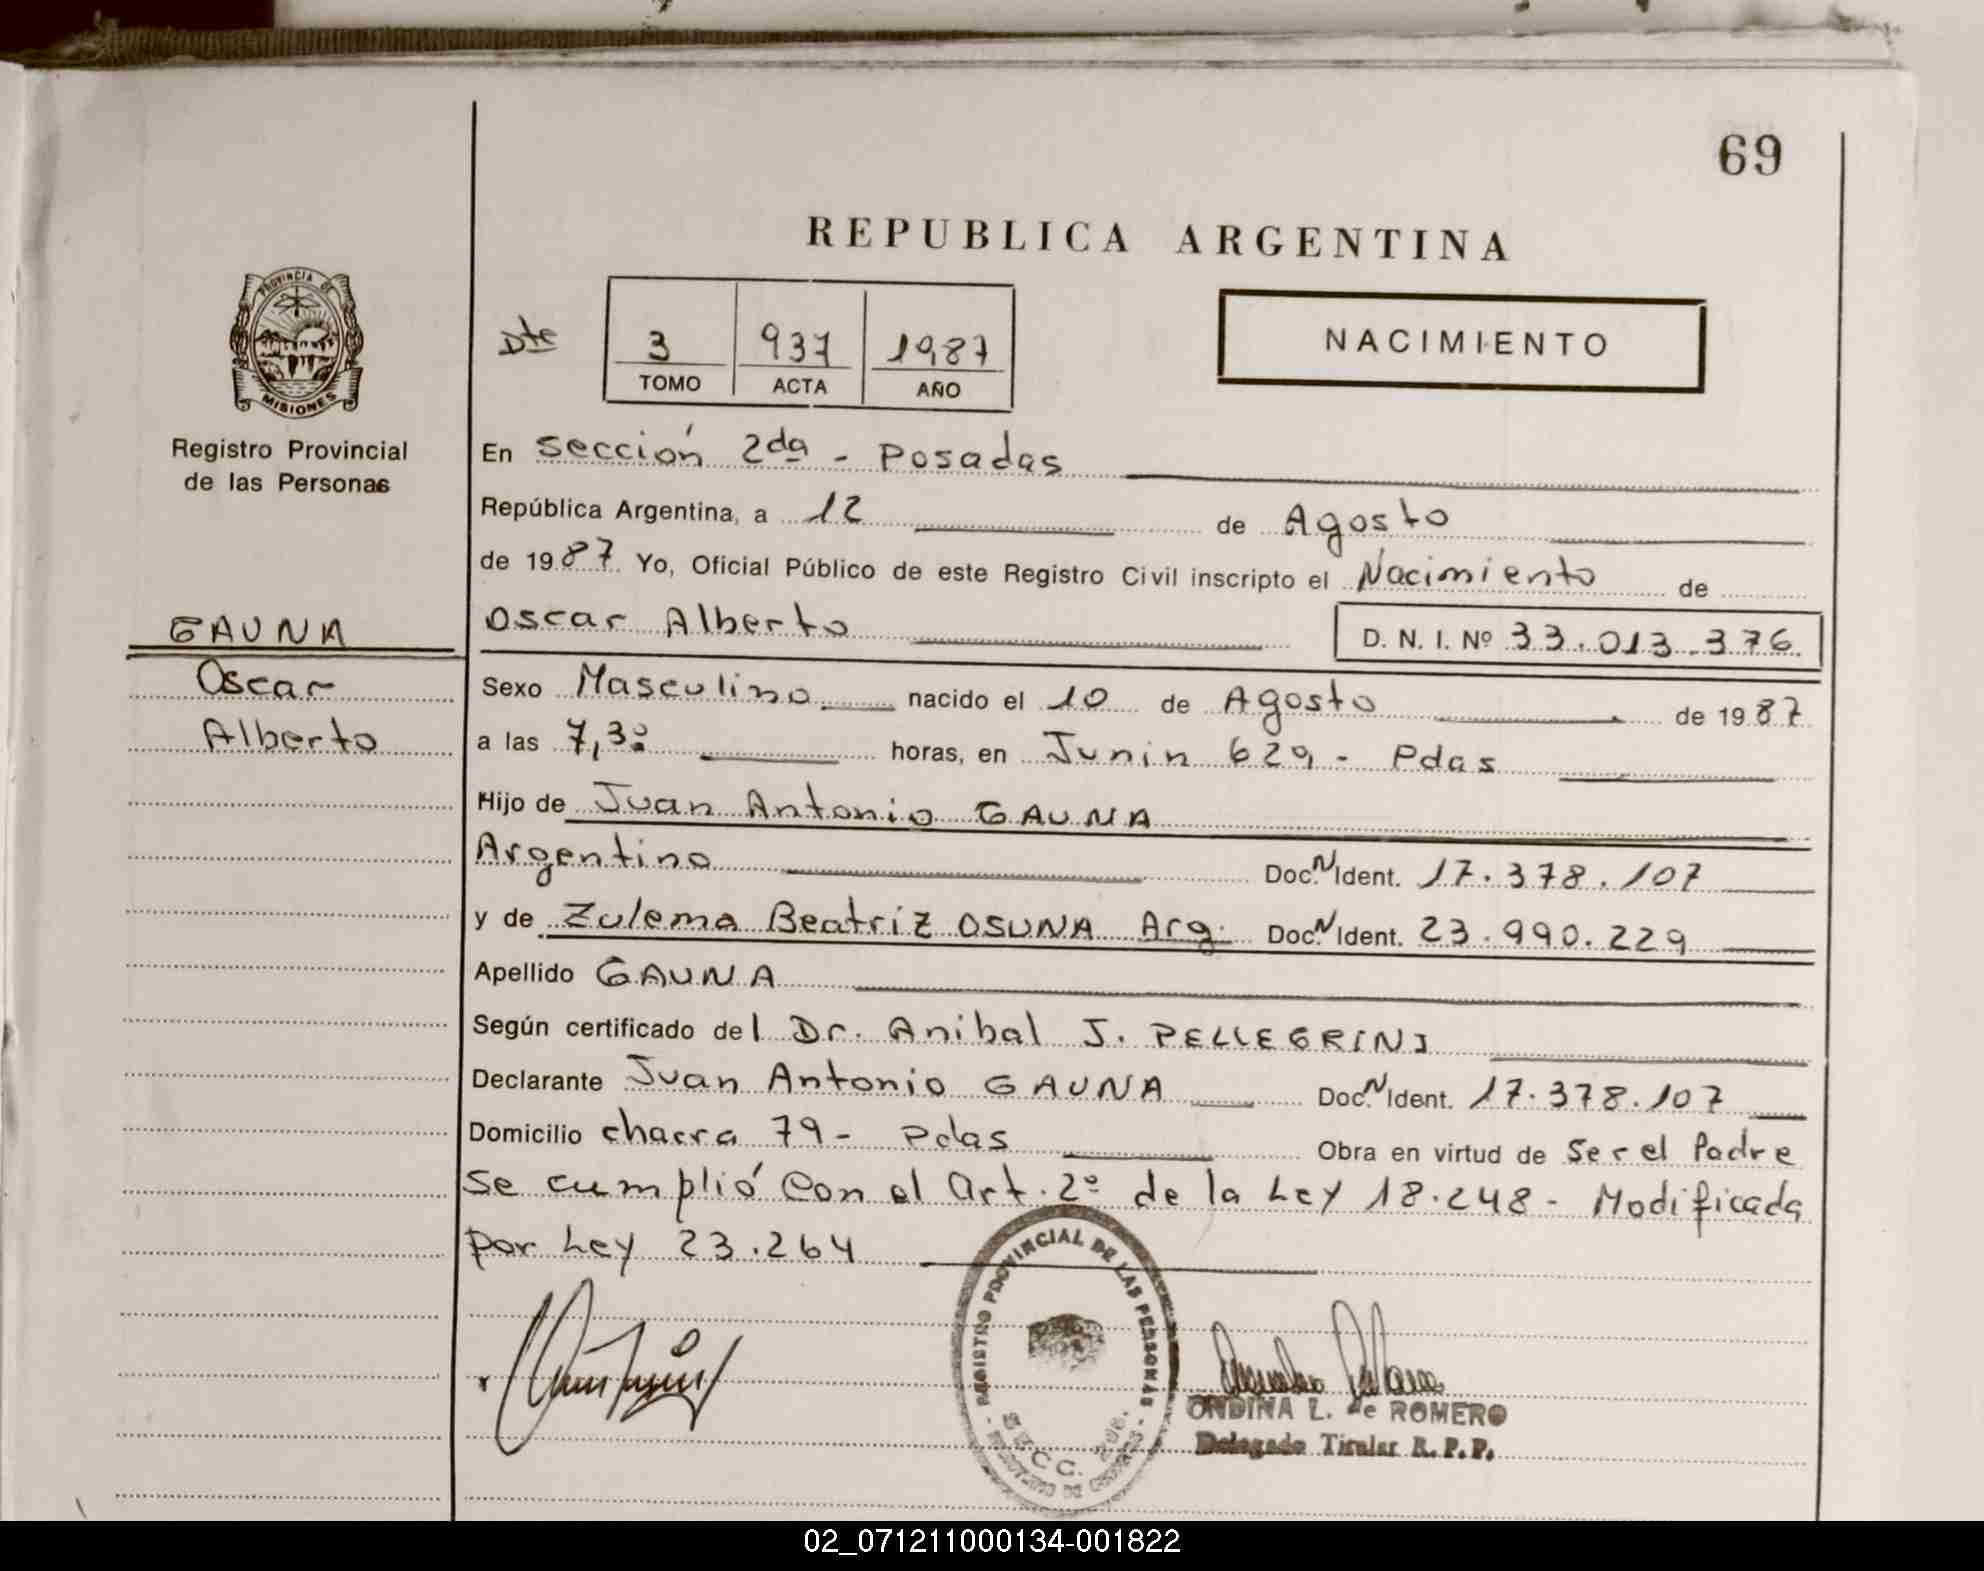 69
REPUBLICA ARGENTINA
PROVINCIA DE
MISIONES
Registro Provincial
de las Personas
Dte
3 937 1987
TOMO ACTA AÑO
NACIMIENTO
En sección 2da - Posadas
República Argentina, a 12 de Agosto
de 1987 Yo, Oficial Público de este Registro Civil inscripto el Nacimiento de
GAUNA
Oscar
Alberto
Oscar Alberto D. N. I. Nº 33.013.376.
Sexo Masculino nacido el 10 de Agosto de 1987
a las 7,30 horas, en Junin 629 - Pdas
Hijo de Juan Antonio GAUNA
Argentino Doc. N Ident. 17.378.107
y de Zulema Beatriz OSUNA Arg. Doc. N Ident. 23.990.229
Apellido GAUNA
Según certificado del Dr. Anibal J. PELLEGRINI
Declarante Juan Antonio GAUNA Doc. N Ident. 17.378.107
Domicilio chacra 79 - Pdas Obra en virtud de Ser el Padre
se cumplió con el art. 2º de la Ley 18.248 - Modificada
por Ley 23.264
REGISTRO PROVINCIAL DE LAS PERSONAS
SECC. 2da.
ONDINA L. de ROMERO
Delegado Titular R. P. P.
02_071211000134-001822